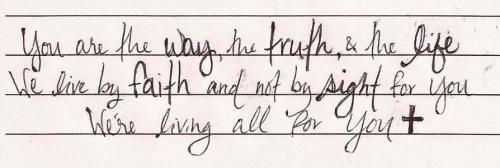 You are the way, the truth, & the life
We live by faith and not by sight for you
We're living all for you